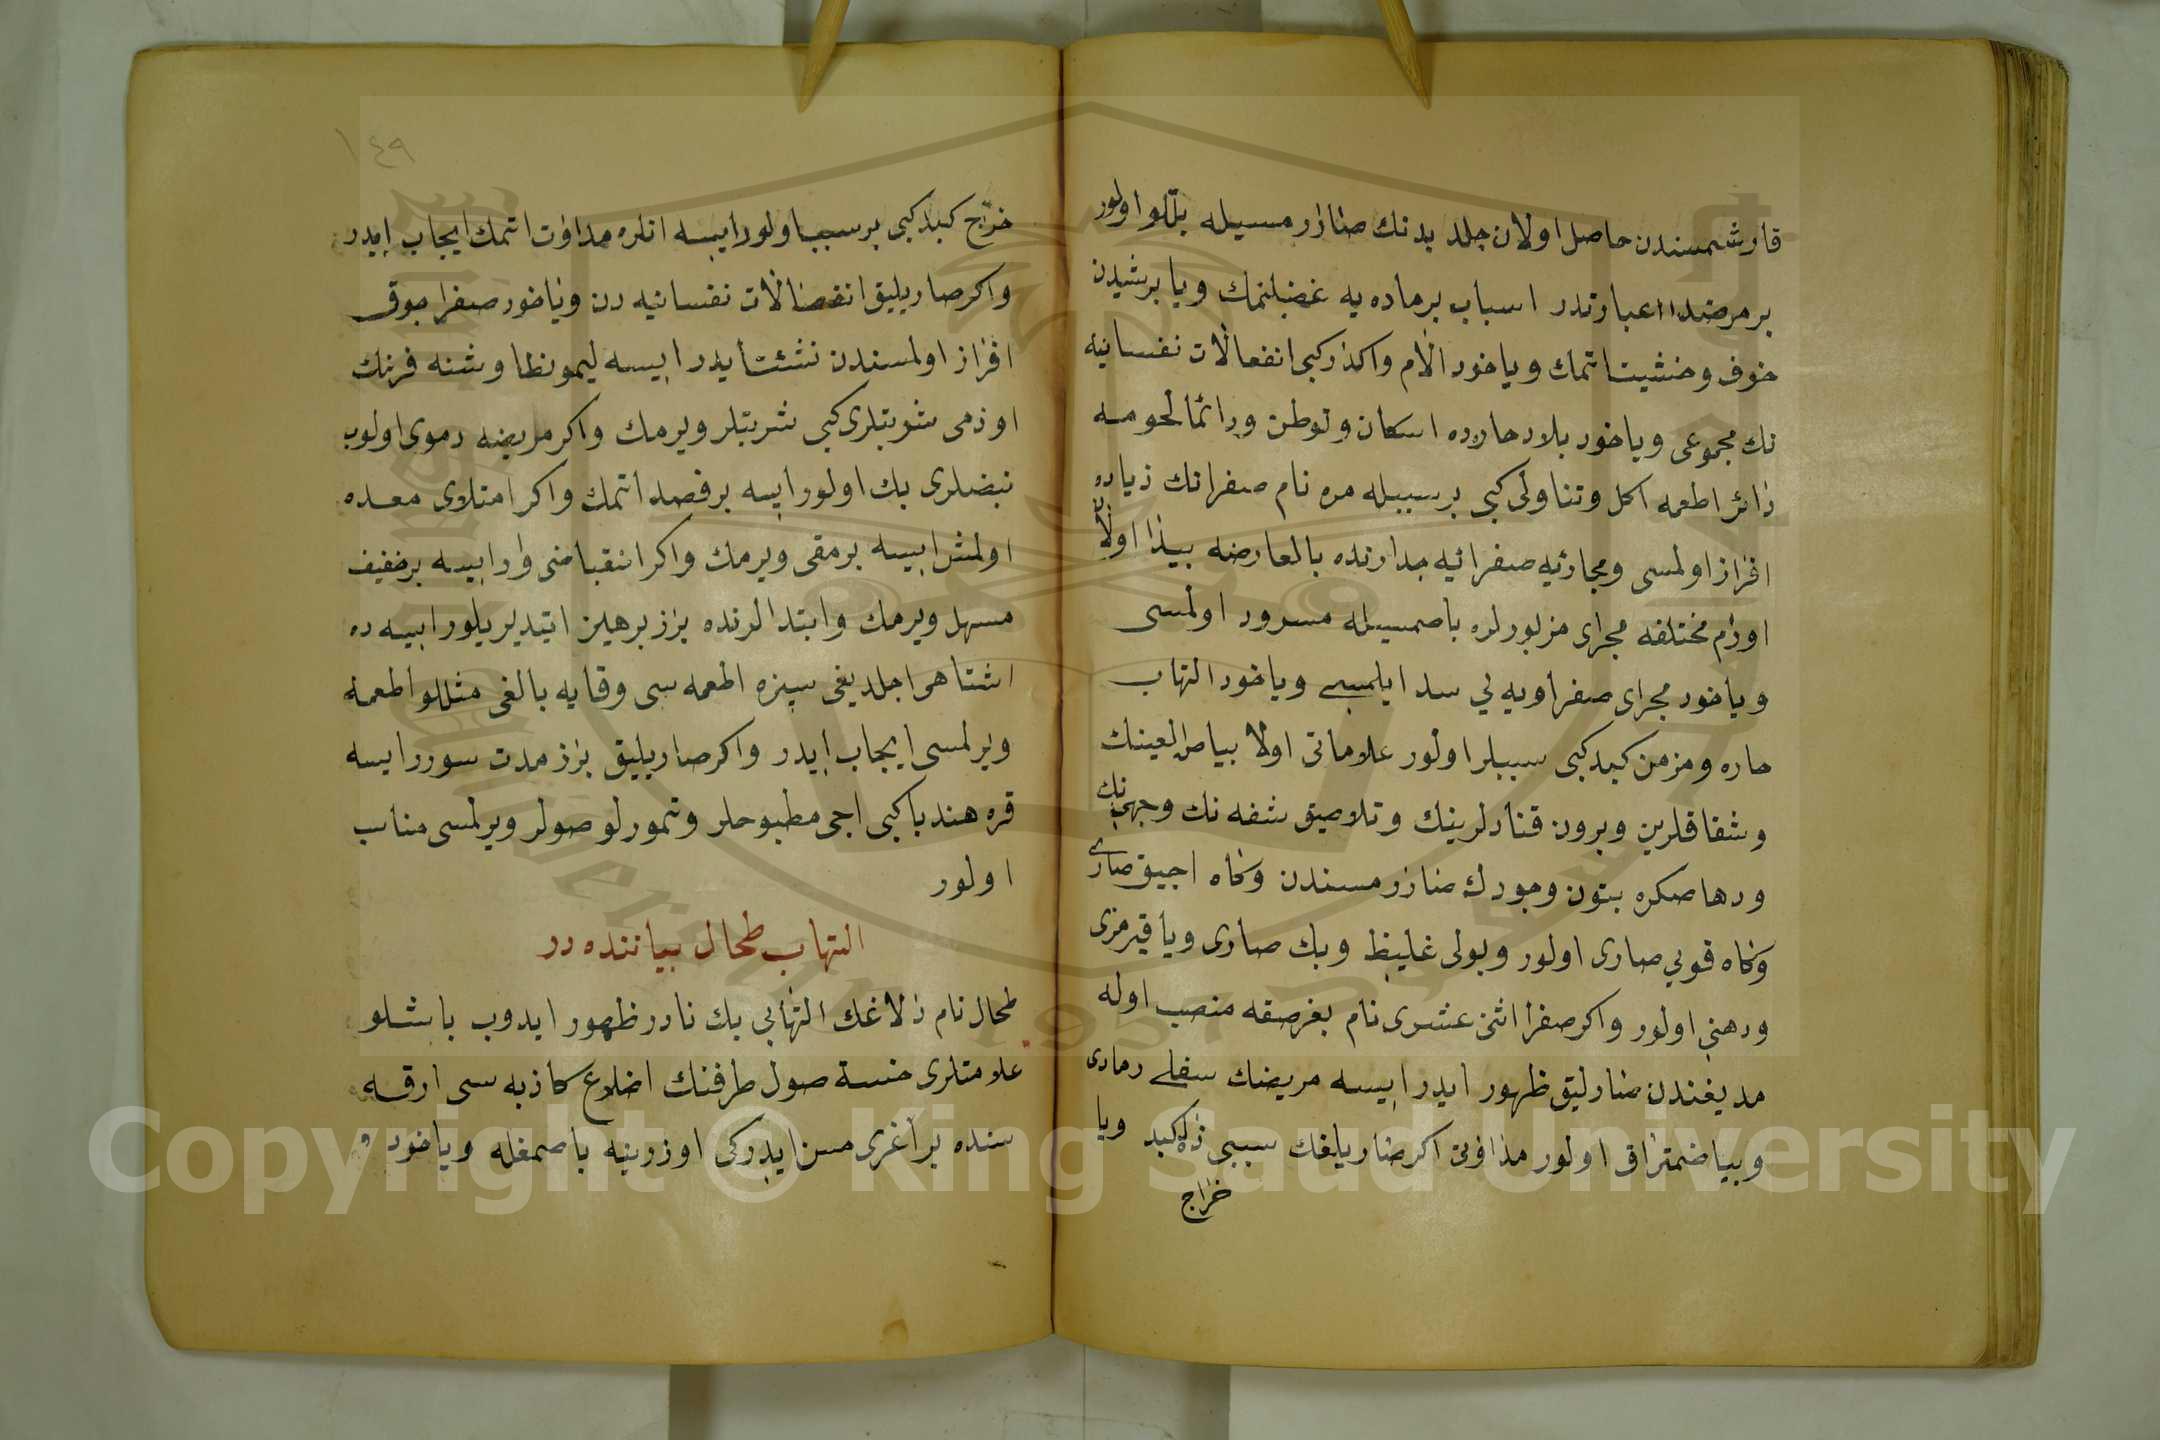 قارشمسندن حاصل اولان جلد بدنك صارارمسيله بللو اولور
بر مرضدن عبارتدر اسباب بر ماده يه غضبلنمك ويا برشيدن
خوف وخشيت اتمك وياخود الام واكدار كبى انفعالات نفسانيه
نك مجموعى وياخود بلاد حاره ده اسكان وتوطن ودائما لحومه
دائر اطعمه اكل وتناولى كبى بر سببله مره نام صفرانك زياده
افراز اولمسى ومجارئ صفرائيه جدارنده بالعارضه پيدا اولان
اورام مختلفه مجراى مزبورلره باصمسيله مسرود اولمسى
وياخود مجراى صفراويه يي سد ايلمسى وياخود التهاب
حاره ومزمن كبد كبى سببلر اولور علاماتى اولا بياض العينك
وشقاقلرين وبرون قنادلرينك وتلاصيق شفه نك وجهنك
ودها صكره بتون وجودك صارارمسندن وكاه اجيق صارى
وكاه قويي صارى اولور وبولى غليظ وبك صارى ويا قيرمزى
ودهنى اولور واكر صفرا اثنى عشرى نام بغرصغه منصب اوله
مديغندن صاريلق ظهور ايدر ايسه مريضك سفلى رمادى
وبياضمتراق اولور مداوتى اكر صاريلغك سببى ذات كبد ويا
خراج
١٤٩
خراج كبد كبى بر سبب اولور ايسه انلره مداوات اتمك ايجاب ايدر
واكر صاريليق انفعالات نفسانيه دن وياخود صفرا چوق
افراز اولمسندن نشئت ايدر ايسه ليموناطا وشنه فرنك
اوزمى شربتلرى كبى شربتلر ويرمك واكر مريضه دموى اولوب
نبضلرى بك اولور ايسه بر فصد اتمك واكر امتلاى معده
اولمش ايسه بر مقى ويرمك واكر انقباضى وار ايسه بر خفيف
مسهل ويرمك وابتدالرنده براز برهيز ايتديريلور ايسه ده
اشتاهى اجلديغى سبزه اطعمه سى وقايه بالغى مثللو اطعمه
ويرلمسى ايجاب ايدر واكر صاريليق براز مدت سورر ايسه
قره هندبا كبى اجى مطبوحلر وتمورلو صولر ويرلمسى مناسب
اولور
التهاب طحال بياننده در
طحال نام دلاغك التهابي بك نادر ظهور ايدوب باشلو
علامتلرى خسته صول طرفنك اضلاع كاذبه سى ارقه
سنده بر اغرى حس ايدركى اوزرينه باصمغله وياخود
Copyright © King Saud University